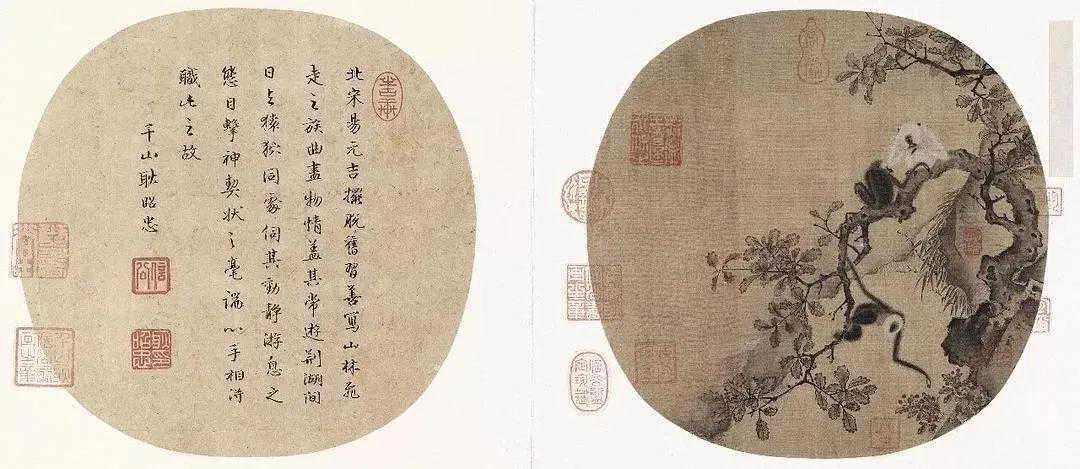 北宋易元吉擺脫舊習善寫山林飛
走之族曲盡物情蓋其常遊荊湖間
日与猿狖同處伺其動靜游息之
態目擊神契狀之毫端心手相淂
職此之故
千山耿昭忠
信公